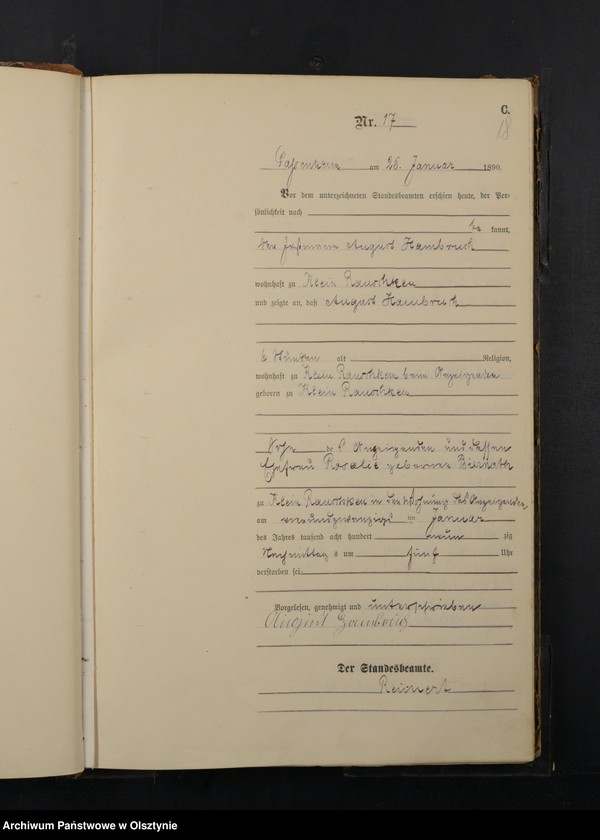 C.
Nr. 17
18
am 26. Januar 1890.
Vor dem unterzeichneten Standesbeamten erschien heute, der Per-
sönlichkeit nach
be kannt,
der August Hambruch
wohnhaft zu Klein Rauschken
und zeigte an, daß August Hambruch
6 Stunden alt Religion,
wohnhaft zu Klein Rauschken beim Anzeigenden
geboren zu Klein Rauschken
Sohn des Anzeigenden und dessen
Ehefrau Rosalie geborner Biernath
zu Klein Rauschken in der Wohnung des Anzeigenden
am den Januar
des Jahres tausend acht hundert neun zig
Nachmittag s um fünf Uhr
verstorben sei.
Vorgelesen, genehmigt und unterschrieben
August Hambruch
Der Standesbeamte.
Reichert
Archiwum Państwowe w Olsztynie